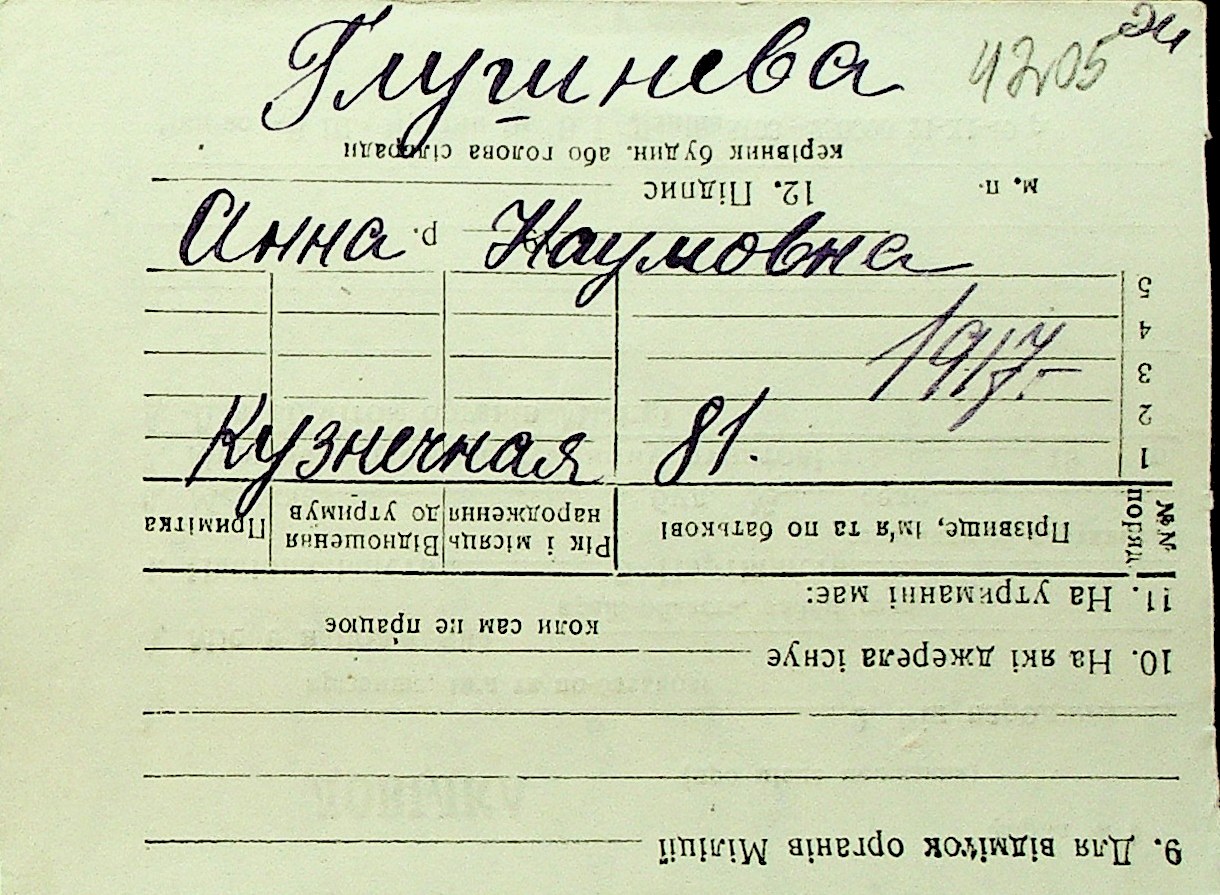 Глушнева
Анна Наумовна
1917 г.
Кузнечная 81.
9. Для відміток органів Міліції
10. На які джерела існує
коли сам не працює
11. На утриманні має:
№№ поряд
Прізвище, ім'я та по батькові
Рік і місяць народження
Відношення до утримув
Примітка
1
2
3
4
5
р.
м. п.
12. Підпис
керівник будин. або голова сільради